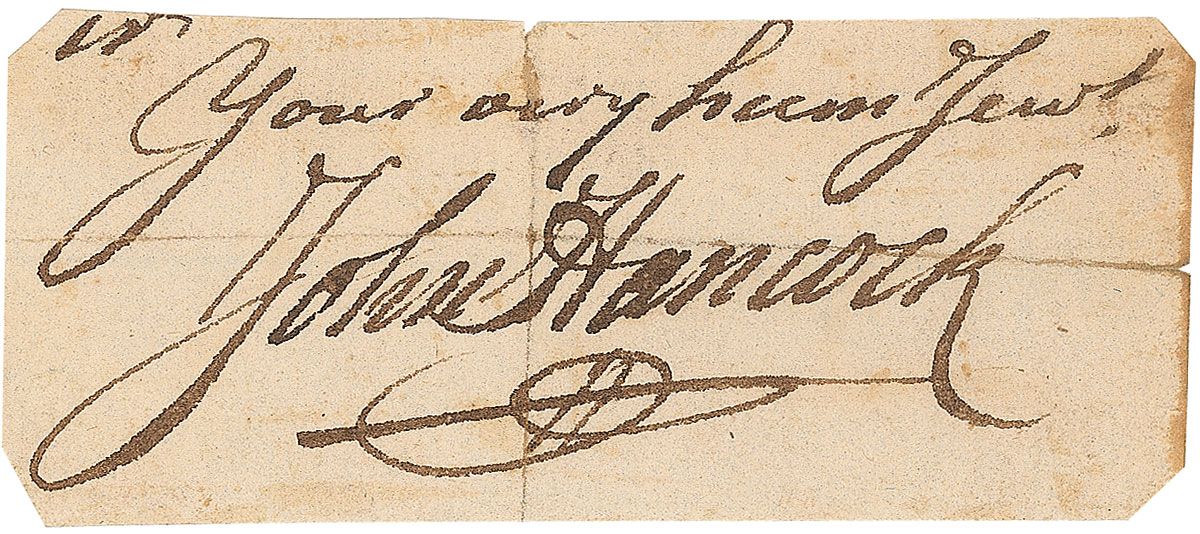 Your very hum Servt
John Hancock